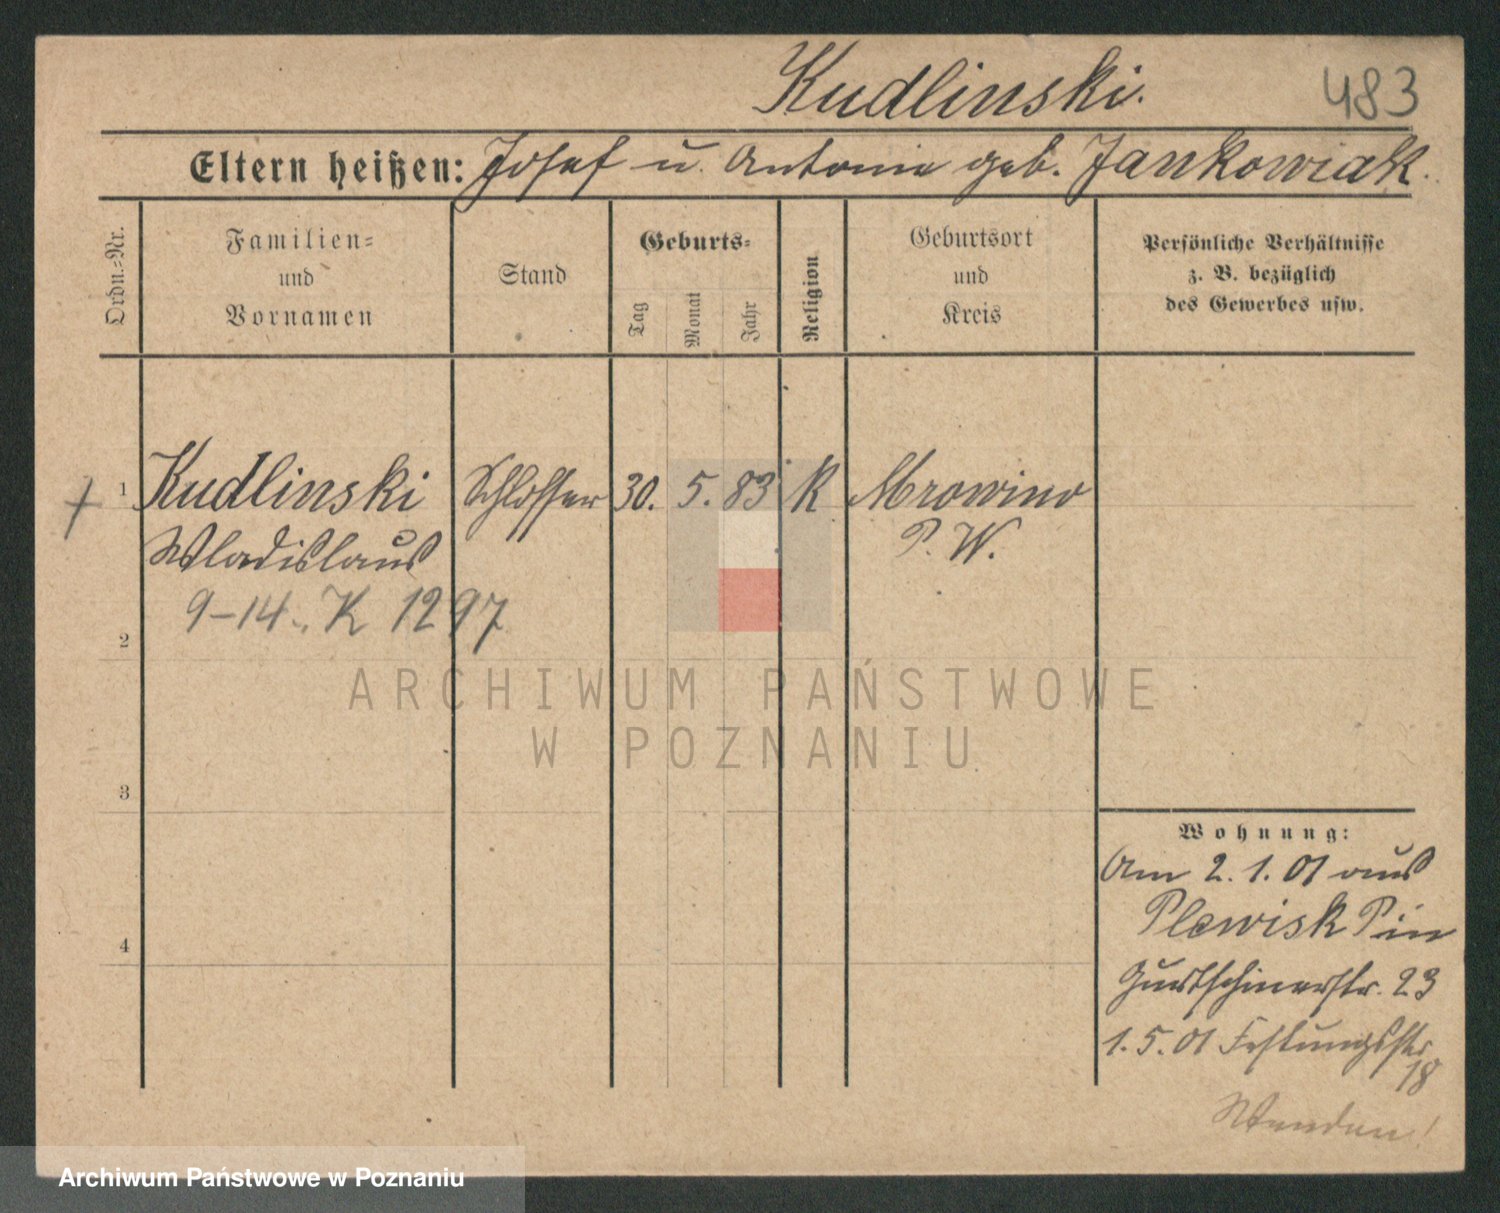 Kudlinski.
483
Eltern heißen: Josef u. Antonie geb. Jankowiak.
Ordn.=Nr.
Familien=
und
Vornamen
Stand
Geburts=
Tag
Monat
Jahr
Religion
Geburtsort
und
Kreis
Persönliche Verhältnisse
z. B. bezüglich
des Gewerbes usw.
+ 1 Kudlinski Schlosser 30. 5. 83 K Mrowino
Wladislaus P. W.
9-14. K 1297
2
ARCHIWUM PAŃSTWOWE
W POZNANIU
3
Wohnung:
Am 2.1.01 aus
4
Plewisk P in
Gurtschinerstr. 23
1.5.01 Festungsstr.
18
Wenden!
Archiwum Państwowe w Poznaniu